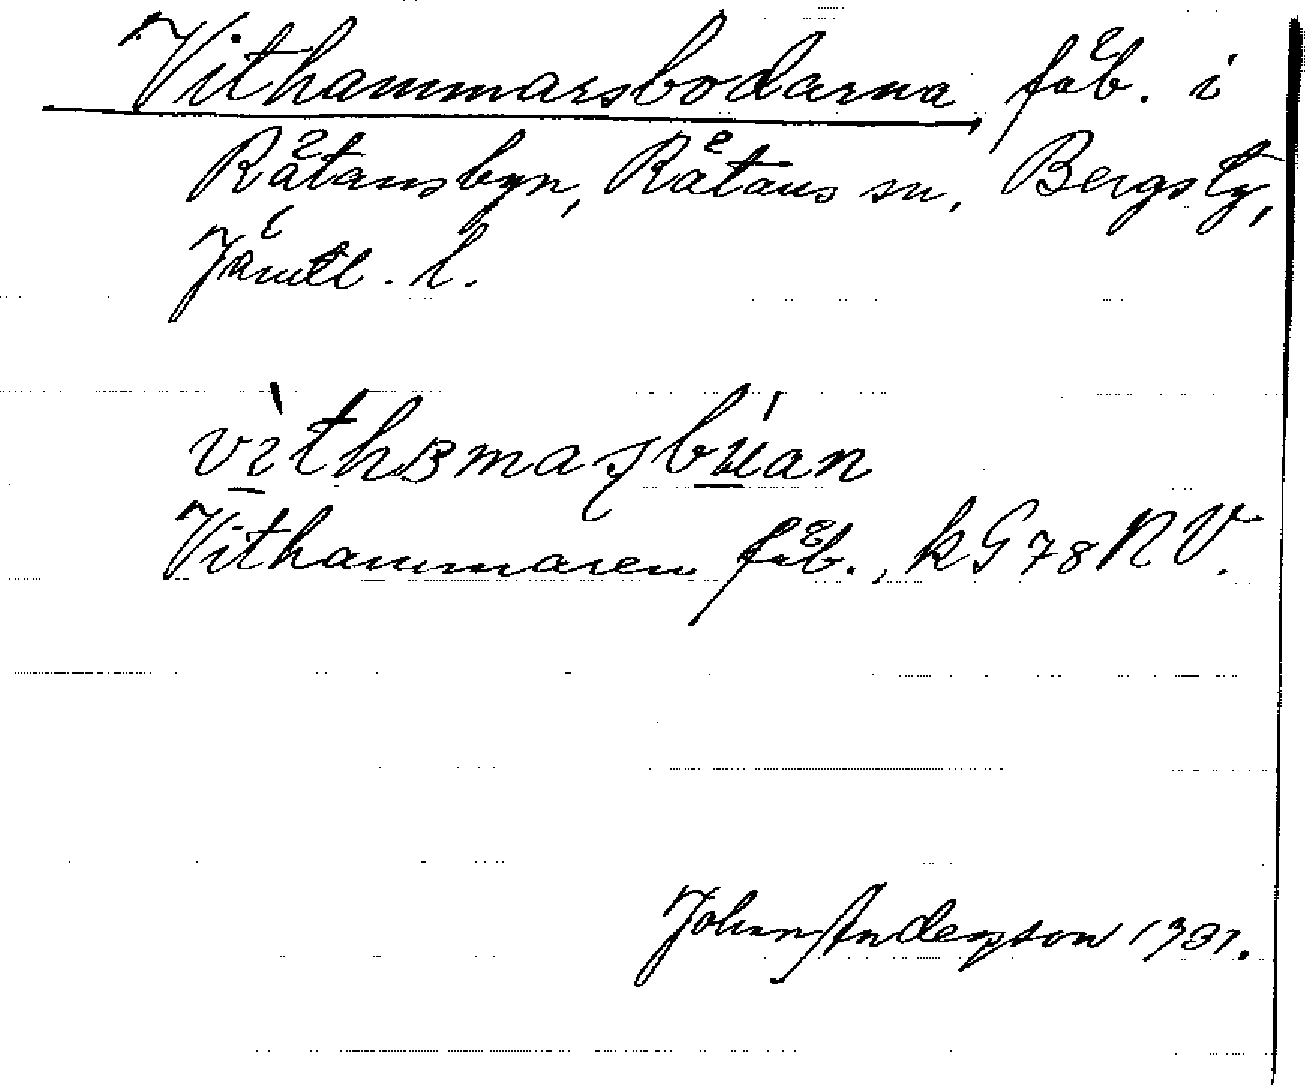 Vithammarsbodarna fäb. i
Rätansbyn, Rätans sn, Bergs tg,
Jämtl. l.
vìthɞmaʂbúan
Vithammaren fäb., k G 78 NV.
John Anderson 1931.